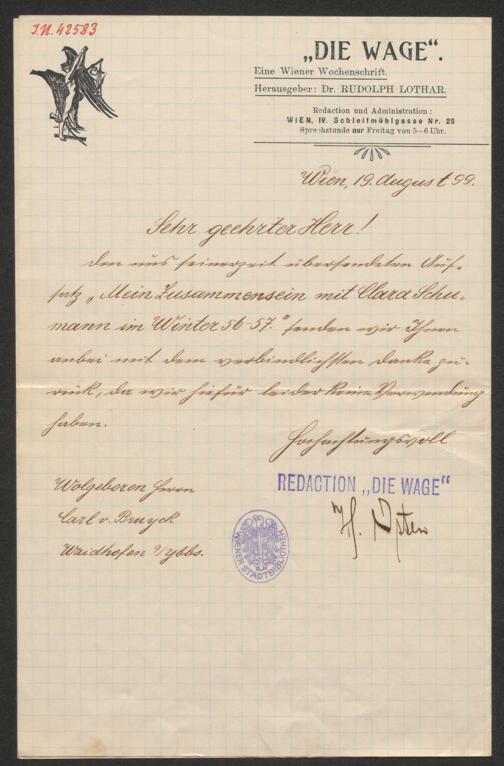 J.N. 42583
„DIE WAGE“.
Eine Wiener Wochenschrift.
Herausgeber: Dr. RUDOLPH LOTHAR.
Redaction und Administration:
WIEN, IV. Schleifmühlgasse Nr. 25
Sprechstunde nur Freitag von 5–6 Uhr.
Wien, 19. August 99.
Sehr geehrter Herr!
Den uns seinerzeit übersendeten Auf-
satz „Mein Zusammensein mit Clara Schu-
mann im Winter 56-57.“ senden wir Ihnen
anbei mit dem verbindlichsten Danke zu-
rück, da wir hiefür leider keine Verwendung
haben.
Hochachtungsvoll
REDACTION „DIE WAGE“
Wolgeboren Herrn
Carl v. Bruyck
Waidhofen a/Ybbs.
WIENER STADTBIBLIOTHEK